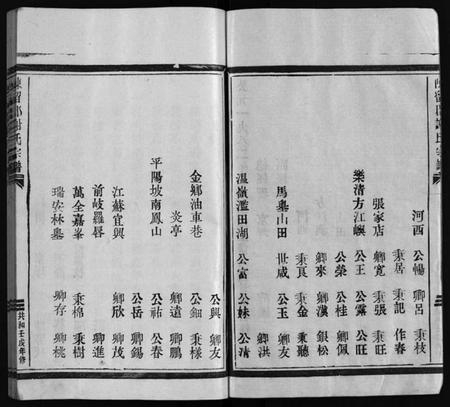 河西 公暢 卿呂 秉枝
秉居 秉記 作春
張家店 卿寬 秉張 秉旺
樂清方江嶼 公王 公露 公旺
田 公榮 公桂 卿佩
卿來 卿漢 銀松
秉良 秉金 秉聽
馬槽山田 世咸 公玉 卿友
卿洪
溫嶺灆田湖 公富 公妹 公清
公興 卿友
金鄉油車巷 公鈿 秉樣
炎亭 卿遠 卿鵬
平陽坡南鳳山 公祜 公春
公岳 卿錫
江蘇宜興 卿欣 卿茂
前岐羅唇 卿進
萬全嘉峯 秉棉 秉樹
瑞安林垟 卿存 卿桃
陳留郡謝氏宗譜
共和壬戌年修